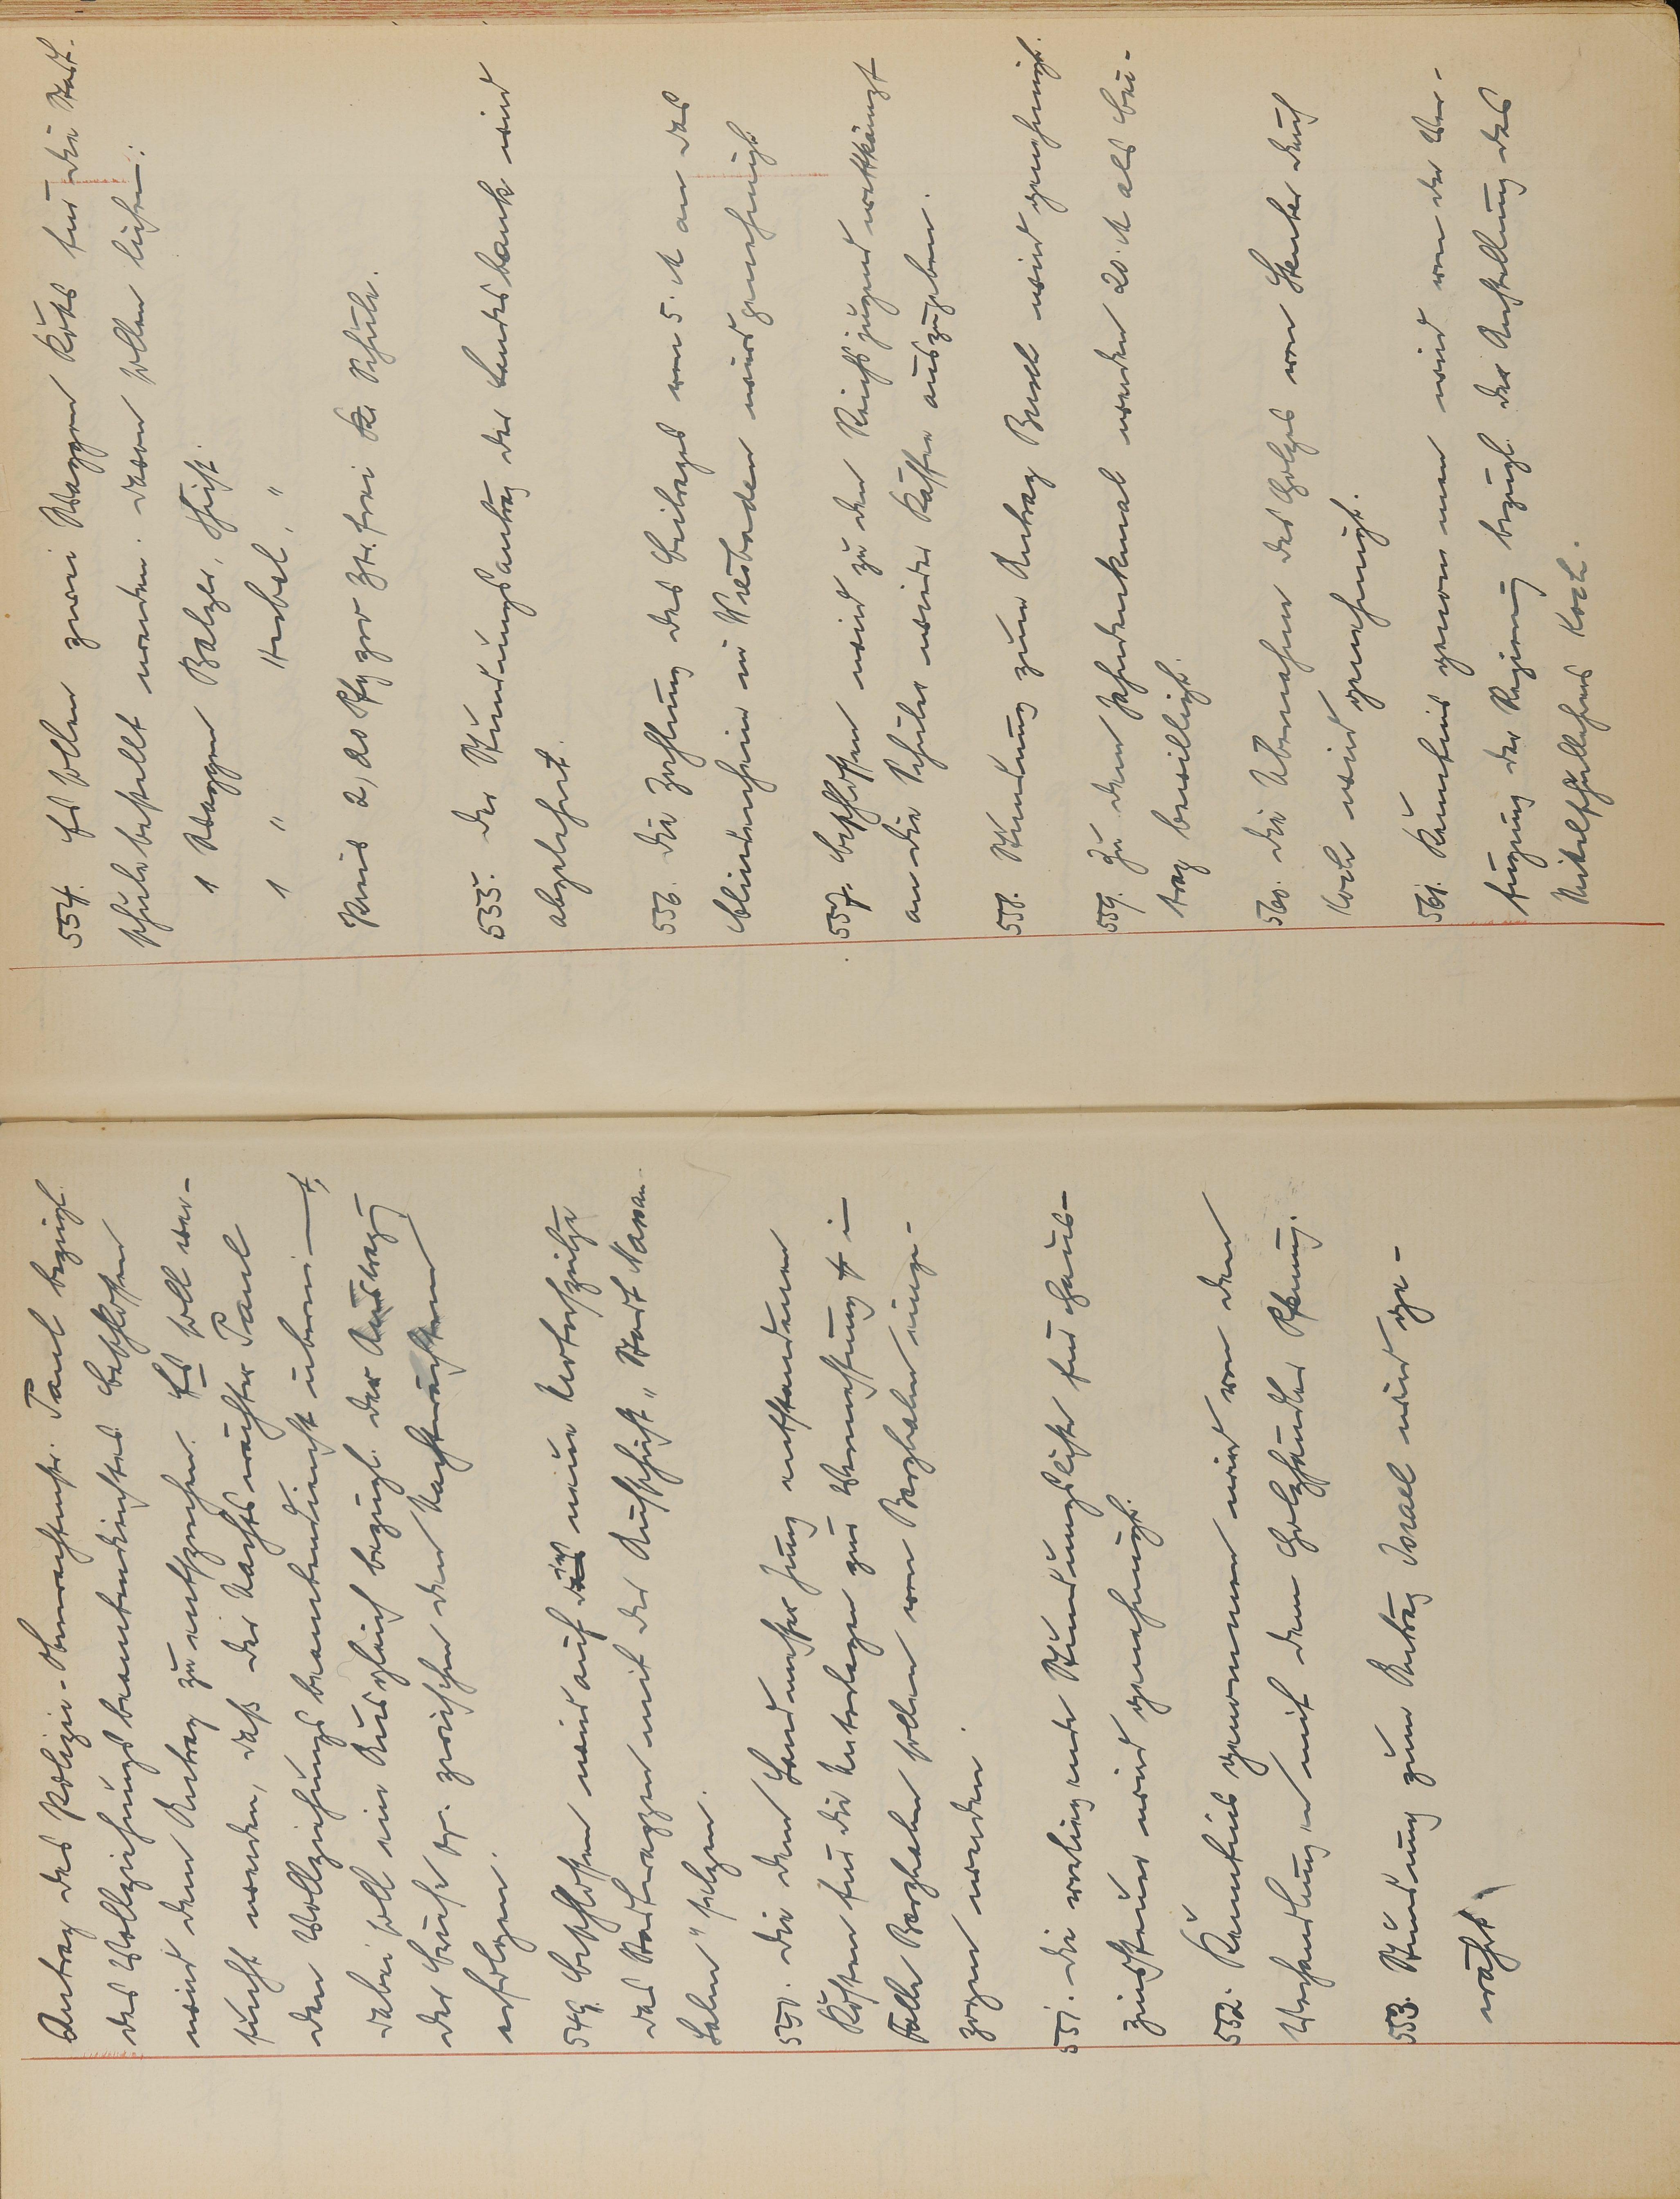 Antrag des Polizei-Oberwachtmstr. Paul bezügl.
des Vollziehungsbeamtendienstes. Beschlossen
wird dem Antrag zu entsprechen. Es soll ver-
sucht werden, daß der Nachtwächter Paul
den Vollziehungsbeamtendienst übernimmt,
dabei soll ein Ausgleich bezügl. der
der Berufe pp. zwischen den Nachtwächtern
erfolgen.
549. Beschlossen wird auf die neue
das Stadtwappen mit der Aufschrift „Stadt Nassau
Lahn" setzen.
550. Die dem Landmesser Jung entstandenen
Kosten für die Unterlagen zur Vermessung im
Falle Bergbahn sollen von Bergbahn einge-
zogen werden.
551. Die vorliegende Stundungsliste für Haus-
zinssteuer wird genehmigt.
552. Kenntnis genommen wird von den
Verhandlungen mit dem Holzhändler
553. Stundung zum Antrag Israel wird ge-
währt.
554. Es sollen zwei Waggon Koks für die Stadt-
schule bestellt werden. Davon sollen liefern:
1 Waggon Balzer, hier.
1 " Herbel, "
Preis 2,20 Pfg pro Ztr. frei Schule.
555. Der Stundungsantrag der Landesbank wird
abgelehnt.
556. Die Zahlung des Beitrages von 5. M an das
Blindenheim in Wiesbaden wird genehmigt
557. Beschlossen wird zu den Reichsjugendwettkämpfen
an die Schüler wieder Kaffee auszugeben.
558. Stundung zum Antrag Busch wird genehmigt.
559. Zu dem Jahndenkmal werden 20. M als Bei-
trag bewilligt.
560. Die Übernahme des Holzes von durch
Koch wird genehmigt.
561. Kenntnis genommen wird von der Ver-
fügung der Regierung bezügl. der Anstellung des
Mittelschullehrers Koch.